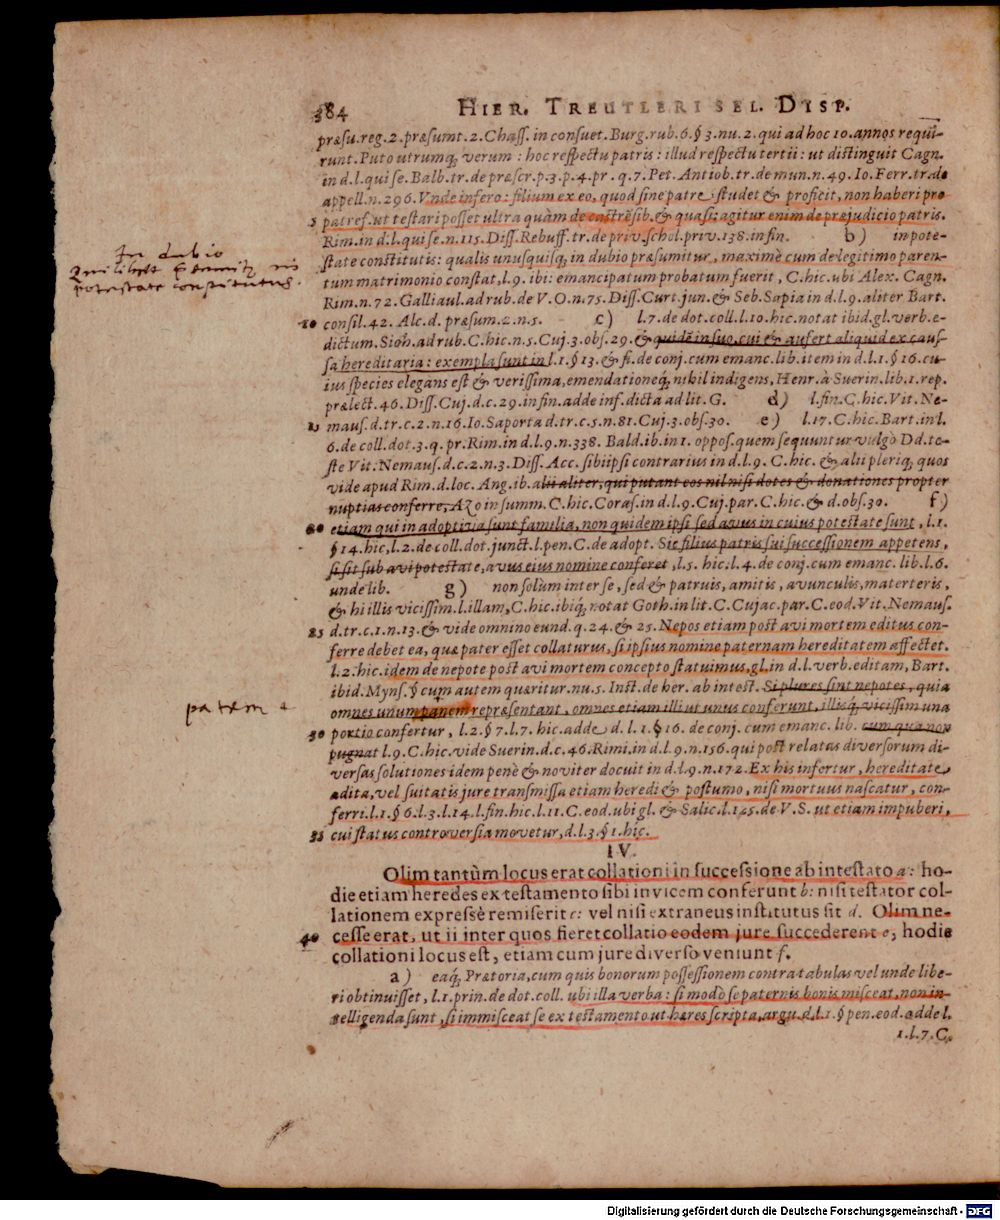 384 HIER. TREUTLERI SEL. DISP.
præsu.reg.2.præsumt.2.Chass.in consuet.Burg.rub.6.§ 3.nu.2.qui ad hoc 10.annos requi-
runt.Puto utrumq; verum : hoc respectu patris : illud respectu tertii : ut distinguit Cagn.
in d.l.qui se. Balb.tr.de præscr.p.3.p.4.pr . q.7. Pet. Antiob.tr.de mun.n.49. Io. Ferr.tr.de
appell.n.296. Vnde infero : filium ex eo, quod sine patre studet & proficit, non haberi pro
5 patref.ut testari posset ultra quàm de castrēsib.& quasi: agitur enim de præjudicio patris.
Rim.in d.l.qui se.n.115.Diss.Rebuff.tr.de priv.schol.priv.138.in fin. b) in pote-
In dubio
state constitutis: qualis unusquisq; in dubio præsumitur, maximè cum de legitimo paren-
potestate constitutus.
tum matrimonio constat,l.9. ibi: emancipatum probatum fuerit, C.hic.ubi Alex. Cagn.
Rim.n.72. Galliaul.ad rub.de V.O.n.75.Diss.Curt.jun.& Seb.Sapia in d.l.9.aliter Bart.
10 consil.42. Alc.d. præsum.2.n.5. c) l.7.de dot.coll.l.10.hic.notat ibid.gl.verb.e-
dictum. Sioh.ad rub.C.hic.n.5.Cuj.3.obs.29.& quidē in suo,cui & aufert aliquid ex caus-
sa hereditaria : exempla sunt in l.1.§ 13.& fi.de conj.cum emanc.lib.item in d.l.1.§ 16.cu-
ius species elegans est & verissima,emendationeq; nihil indigens, Henr.à Suerin.lib.1.rep.
prælect.46.Diss.Cuj.d.c.29.in fin.adde inf.dicta ad lit.G. d) l.fin.C.hic.Vit.Ne-
15 maus.d.tr.c.2.n.16.Io.Saporta d.tr.c.5.n.81.Cuj.3.obs.30. e) l.17.C.hic.Bart.in l.
6.de coll.dot.3.q.pr.Rim.in d.l.9.n.338. Bald.ib.in 1. oppos.quem sequuntur vulgò Dd.te-
ste Vit.Nemaus.d.c.2.n.3.Diss. Acc. sibi ipsi contrarius in d.l.9. C.hic. & alii pleriq; quos
vide apud Rim.d.loc. Ang.ib.alii aliter, qui putant eos nil nisi dotes & donationes propter
nuptias conferre, Azo in summ.C.hic.Coras.in d.l.9.Cuj.par.C.hic.& d.obs.30. f)
20 etiam qui in adoptiva sunt familia, non quidem ipsi sed avus in cuius potestate sunt, l.1.
§ 14.hic,l.2.de coll.dot.junct.l.pen.C.de adopt. Sic filius patris sui successionem appetens,
si sit sub avi potestate, avus eius nomine conferet, l.5. hic.l.4.de conj.cum emanc.lib.l.6.
unde lib. g) non solùm inter se, sed & patruis, amitis, avunculis, materteris,
& hi illis vicissim.l.illam,C.hic.ibiq; notat Goth.in lit.C.Cujac.par.C.eod.Vit.Nemaus.
25 d.tr.c.1.n.13.& vide omnino eund.q.24.& 25.Nepos etiam post avi mortem editus con-
ferre debet ea, quæ pater esset collaturus, si ipsius nomine paternam hereditatem affectet.
l.2.hic.idem de nepote post avi mortem concepto statuimus,gl.in d.l.verb.editam, Bart.
ibid.Myns.§ cum autem quæritur.nu.5. Inst.de her. ab intest. Si plures sint nepotes, quia
patrem
omnes unum panem repræsentant, omnes etiam illi ut unus conferunt, illisq; vicissim una
30 portio confertur, l.2.§ 7.l.7. hic.adde d. l.1.§ 16. de conj. cum emanc. lib. cum qua non
pugnat l.9. C.hic.vide Suerin.d.c.46.Rimi.in d.l.9.n.156.qui post relatas diversorum di-
versas solutiones idem penè & noviter docuit in d.l.9.n.172. Ex his infertur, hereditate
adita,vel suitatis jure transmissa etiam heredi & postumo, nisi mortuus nascatur, con-
ferri.l.1.§ 6.l.3.l.14.l.fin.hic.l.11.C.eod.ubi gl. & Salic.l.125.de V.S. ut etiam impuberi,
35 cui status controversia movetur, d.l.3.§ 1.hic.
IV.
Olim tantùm locus erat collationi in successione ab intestato a: ho-
die etiam heredes ex testamento sibi invicem conferunt b: nisi testator col-
lationem expressè remiserit c: vel nisi extraneus institutus sit d. Olim ne-
40 cesse erat, ut ii inter quos fieret collatio eodem jure succederent e, hodie
collationi locus est, etiam cum jure diverso veniunt f.
a) eaq; Prætoria,cum quis bonorum possessionem contra tabulas vel unde libe-
ri obtinuisset, l.1.prin.de dot.coll. ubi illa verba : si modò se paternis bonis misceat, non in-
telligenda sunt, si immisceat se ex testamento ut hæres scripta, argu.d.l.1.§ pen.eod.adde l.
1.l.7.C.
Digitalisierung gefördert durch die Deutsche Forschungsgemeinschaft - DFG